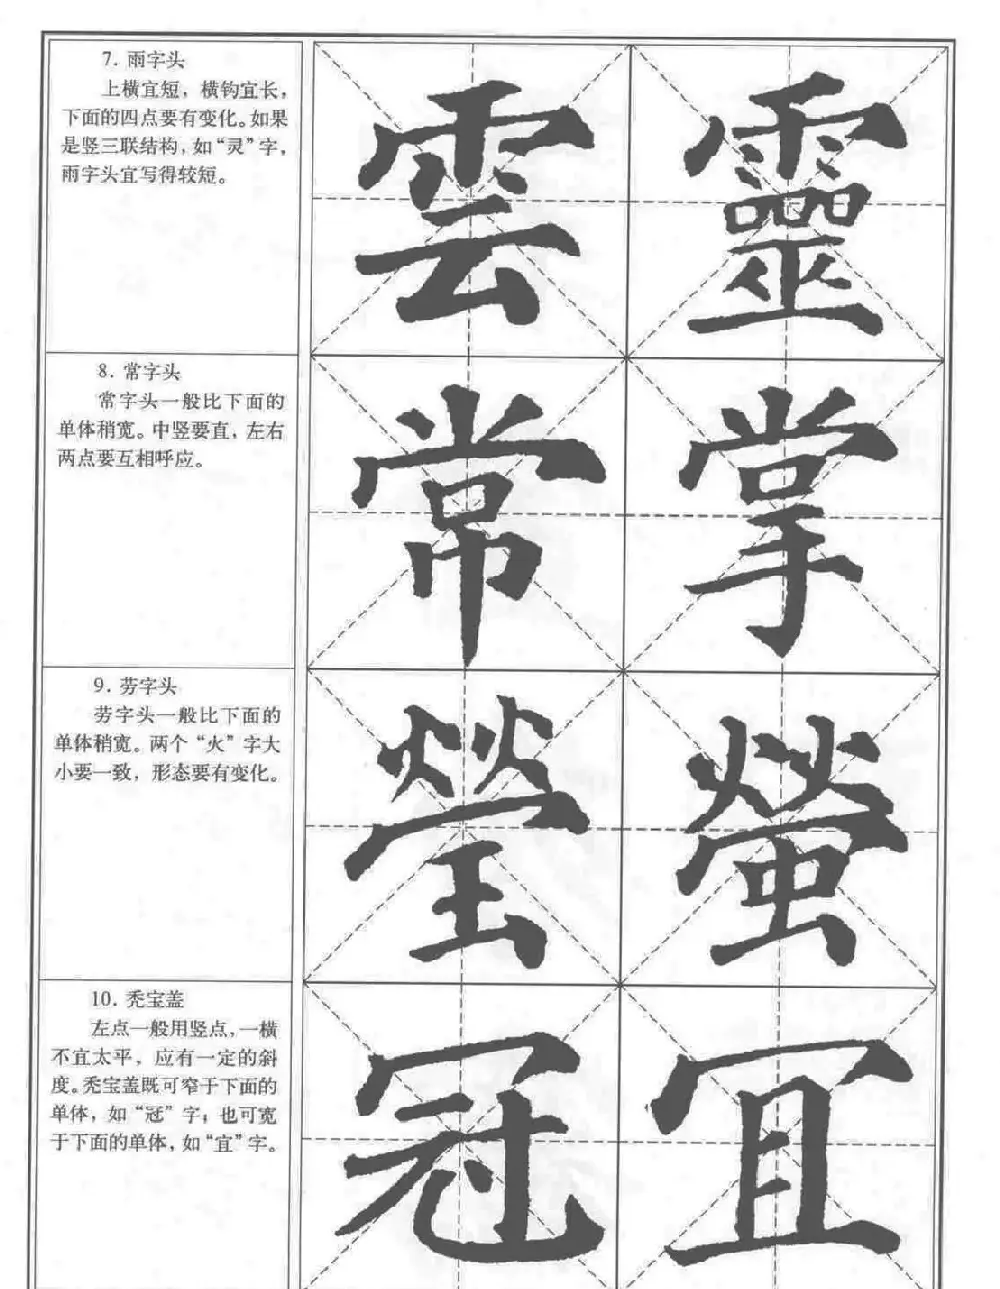 7. 雨字头
上横宜短，横钩宜长，
下面的四点要有变化。如果
是竖三联结构，如“灵”字，
雨字头宜写得较短。
雲 靈
8. 常字头
常字头一般比下面的
单体稍宽。中竖要直，左右
两点要互相呼应。
常 掌
9. 劳字头
劳字头一般比下面的
单体稍宽。两个“火”字大
小要一致，形态要有变化。
瑩 螢
10. 秃宝盖
左点一般用竖点，一横
不宜太平，应有一定的斜
度。秃宝盖既可窄于下面的
单体，如“冠”字；也可宽
于下面的单体，如“宜”字。
冠 冝